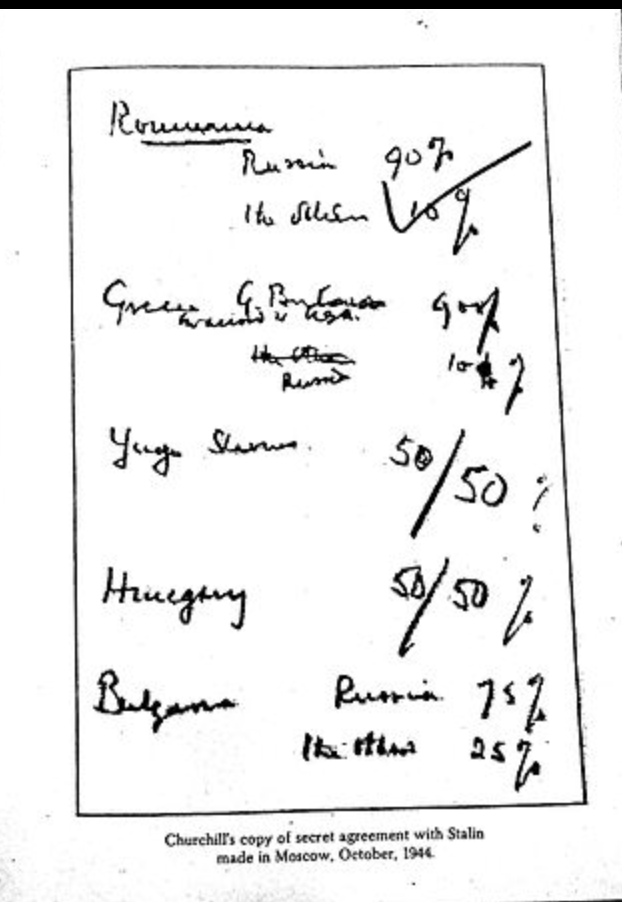 Roumania
Russia 90%
The others 10%
Greece G. Britain 90%
in accord with USA.
The others
Russia 10%
Yugo Slavia. 50/50 %
Hungary 50/50 %
Bulgaria Russia 75%
The others 25%
Churchill's copy of secret agreement with Stalin
made in Moscow, October, 1944.